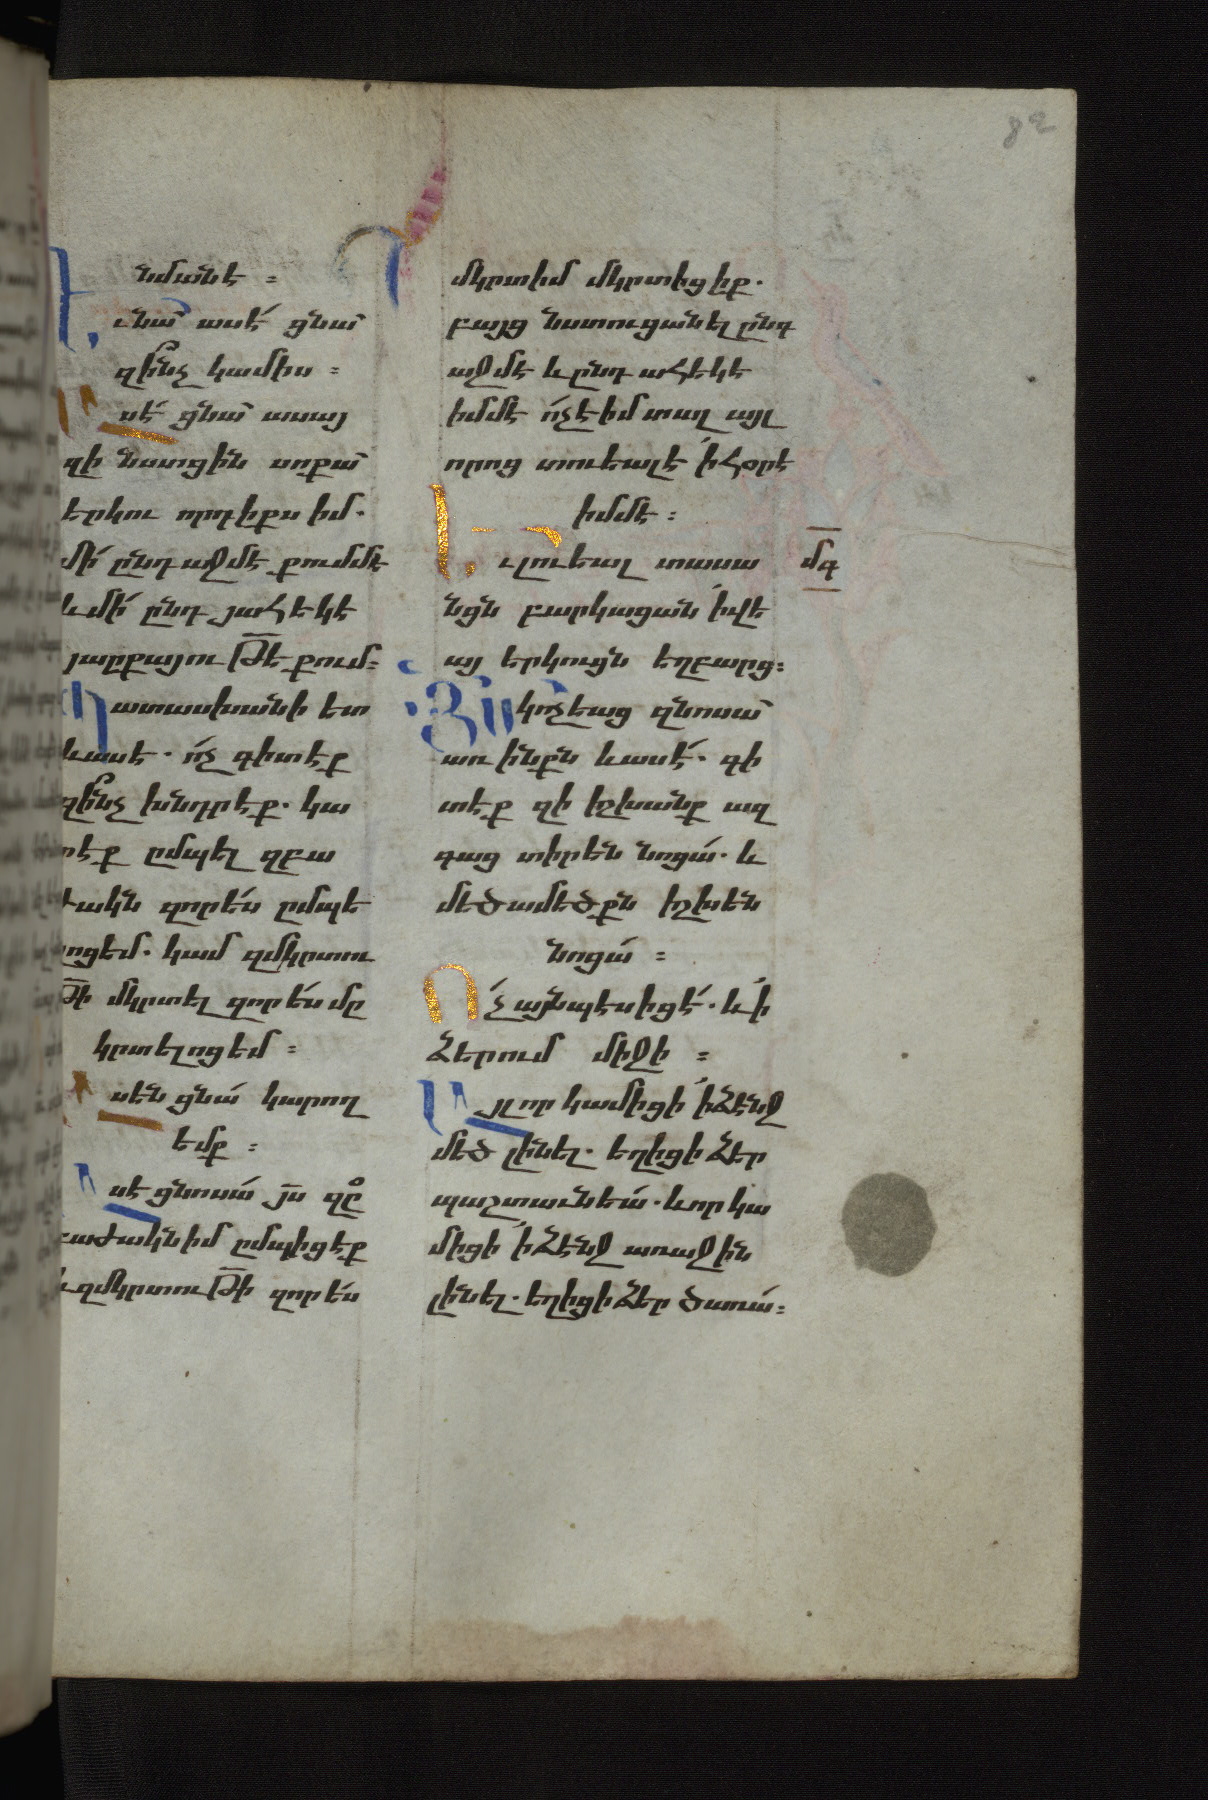 նմանէ ։
Եւ նա ասէ ցնա
զի՞նչ կամիս ։
Ասէ ցնա ասայ
զի նստցին սոքա
երկու որդիքս իմ.
մի ընդ աջմէ քումմէ
և մի ընդ յահեկէ
յարքայութե քում։
Պատասխանի ետ
և ասէ. ոչ գիտէք
զի՞նչ խնդրէք. կա
րէք ըմպել զբա
ժակն զոր ես ըմպե
լոցեմ. կամ զմկրտու
թի մկրտել զոր ես մը
կրտելոցեմ ։
Ասեն ցնա կարող
եմք ։
Ասէ ցնոսա յս զը
բաժակն իմ ըմպիցէք
և զմկրտութի զոր ես
մկրտիմ մկրտիցիք.
բայց նստուցանել ընդ
աջմէ և ընդ ահեկէ
իմմէ ոչ է իմ տալ այլ
որոց տուեալ է ի հօրէ
իմմէ ։
Եւ լուեալ տասա
նցն բարկացան ի վե
այ երկուցն եղբարց։
Յս կոչեաց զնոսա
առ ինքն և ասէ. գի
տէք զի իշխանք ազ
գաց տիրեն նոցա. և
մեծամեծքն իշխեն
նոցա ։
Ոչ այնպէս իցէ. և ի
ձերում միջի ։
Այլ որ կամիցի ի ձէնջ
մեծ լինել. եղիցի ձեր
պաշտաւնեա. և որ կա
միցի ի ձէնջ առաջին
լինել. եղիցի ձեր ծառա։
մգ
82